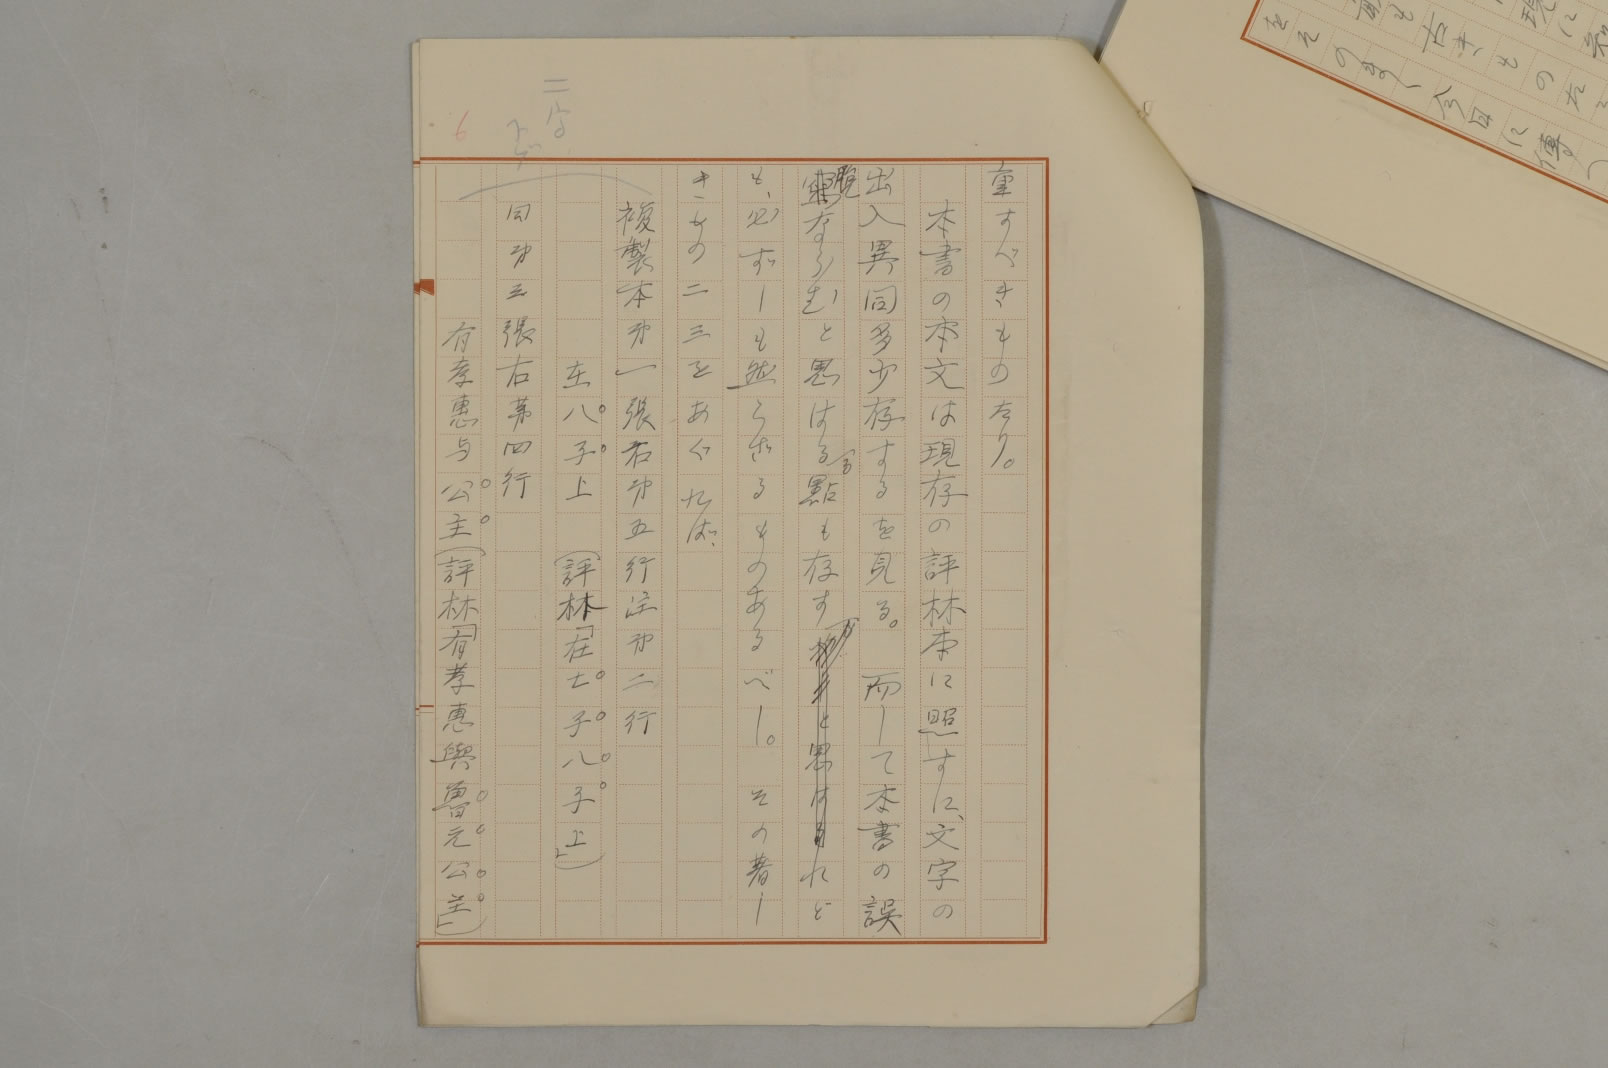 重すべきものなり。
本書の本文は現存の評林本に照すに、文字の
出入異同多少存するを見る。而して本書の誤
脱ならむと思はる点も存すれど
も、必ずしも然らざるものあるべし。その著し
きもの二三をあぐれば、
複製本第一張右第五行注第二行
在八子上（評林「在七子八子上」）
同第三張右第四行
有孝恵与公主（評林「有孝恵與魯元公主」）
二字
下ゲ
6